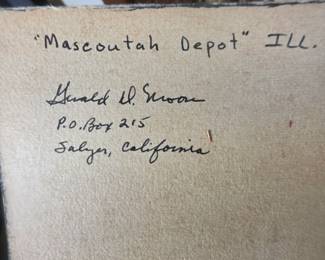 "Mascoutah Depot" ILL.
Gerald D. Moore
P.O. Box 215
Salyer, California